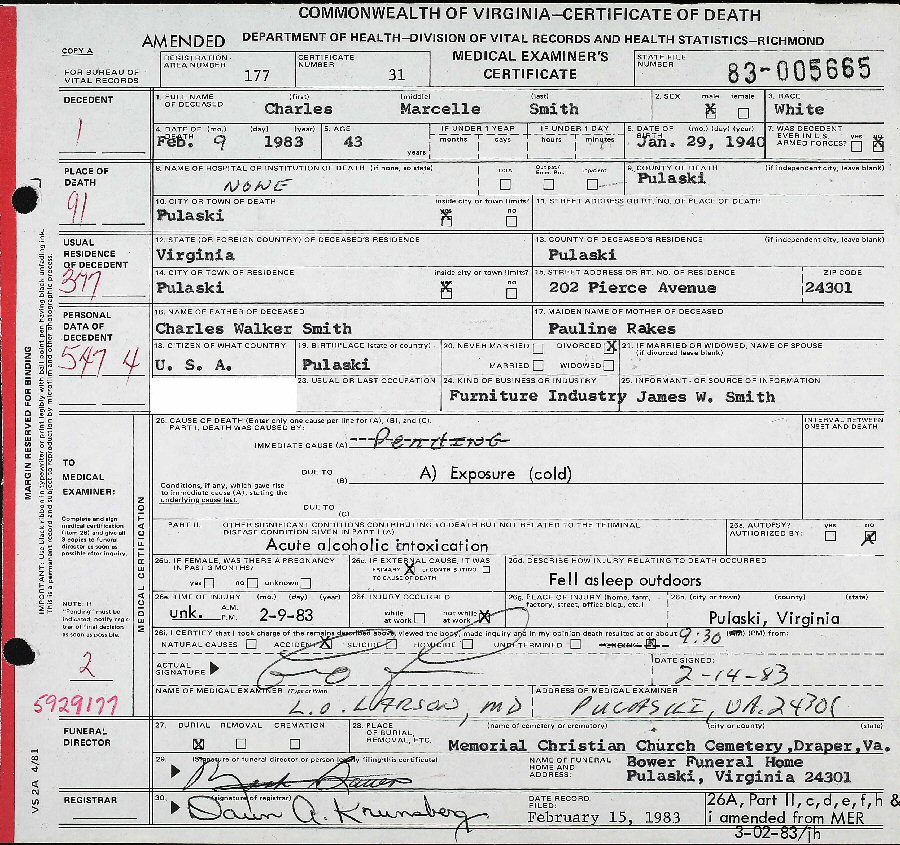 COMMONWEALTH OF VIRGINIA—CERTIFICATE OF DEATH
AMENDED DEPARTMENT OF HEALTH—DIVISION OF VITAL RECORDS AND HEALTH STATISTICS—RICHMOND
COPY A
FOR BUREAU OF VITAL RECORDS
REGISTRATION AREA NUMBER 177
CERTIFICATE NUMBER 31
MEDICAL EXAMINER'S CERTIFICATE
STATE FILE NUMBER 83-005665
DECEDENT
1
1. FULL NAME OF DECEASED (first) (middle) (last)
Charles Marcelle Smith
2. SEX male female
X
3. RACE
White
4. DATE OF DEATH (mo.) (day) (year)
Feb. 9 1983
5. AGE
43 years
IF UNDER 1 YEAR months days
IF UNDER 1 DAY hours minutes
6. DATE OF BIRTH (mo.) (day) (year)
Jan. 29, 1940
7. WAS DECEDENT EVER IN U.S. ARMED FORCES? yes no
X
PLACE OF DEATH
91
8. NAME OF HOSPITAL OR INSTITUTION OF DEATH (if none, so state)
NONE
DOA Outpat/Emer. Rm. Inpatient
9. COUNTY OF DEATH (if independent city, leave blank)
Pulaski
10. CITY OR TOWN OF DEATH inside city or town limits? yes no
Pulaski X
11. STREET ADDRESS OR RT. NO. OF PLACE OF DEATH
USUAL RESIDENCE OF DECEDENT
377
12. STATE (OR FOREIGN COUNTRY) OF DECEASED'S RESIDENCE
Virginia
13. COUNTY OF DECEASED'S RESIDENCE (if independent city, leave blank)
Pulaski
14. CITY OR TOWN OF RESIDENCE inside city or town limits? yes no
Pulaski X
15. STREET ADDRESS OR RT. NO. OF RESIDENCE ZIP CODE
202 Pierce Avenue 24301
PERSONAL DATA OF DECEDENT
547 4
16. NAME OF FATHER OF DECEASED
Charles Walker Smith
17. MAIDEN NAME OF MOTHER OF DECEASED
Pauline Rakes
18. CITIZEN OF WHAT COUNTRY
U. S. A.
19. BIRTHPLACE (state or country)
Pulaski
20. NEVER MARRIED DIVORCED X
MARRIED WIDOWED
21. IF MARRIED OR WIDOWED, NAME OF SPOUSE (if divorced leave blank)
23. USUAL OR LAST OCCUPATION
24. KIND OF BUSINESS OR INDUSTRY
Furniture Industry
25. INFORMANT - OR SOURCE OF INFORMATION
James W. Smith
TO MEDICAL EXAMINER:
Complete and sign medical certification (item 26) and give all 3 copies to funeral director as soon as possible after inquiry.
NOTE: If "Pending" must be indicated, notify registrar of final decision as soon as possible.
2
5929177
MEDICAL CERTIFICATION
26. CAUSE OF DEATH (Enter only one cause per line for (A), (B), and (C).
PART I. DEATH WAS CAUSED BY:
INTERVAL BETWEEN ONSET AND DEATH
IMMEDIATE CAUSE (A) Pending
DUE TO (B) A) Exposure (cold)
Conditions, if any, which gave rise to immediate cause (A), stating the underlying cause last.
DUE TO (C)
PART II. OTHER SIGNIFICANT CONDITIONS CONTRIBUTING TO DEATH BUT NOT RELATED TO THE TERMINAL DISEASE CONDITION GIVEN IN PART I (A)
Acute alcoholic intoxication
26a. AUTOPSY? AUTHORIZED BY: yes no
X
26b. IF FEMALE, WAS THERE A PREGNANCY IN PAST 3 MONTHS?
yes no unknown
26c. IF EXTERNAL CAUSE, IT WAS
PRIMARY X or CONTRIBUTING
TO CAUSE OF DEATH
26d. DESCRIBE HOW INJURY RELATING TO DEATH OCCURRED
Fell asleep outdoors
26e. TIME OF INJURY (mo.) (day) (year)
unk. A.M. P.M. 2-9-83
26f. INJURY OCCURRED
while at work not while at work X
26g. PLACE OF INJURY (home, farm, factory, street, office bldg., etc.)
26h. (city or town) (county) (state)
Pulaski, Virginia
26i. I CERTIFY that I took charge of the remains described above, viewed the body, made inquiry and in my opinion death resulted at or about 9:30 (AM) (PM) from:
NATURAL CAUSES ACCIDENT X SUICIDE HOMICIDE UNDETERMINED PENDING X
ACTUAL SIGNATURE
DATE SIGNED:
2-14-83
NAME OF MEDICAL EXAMINER (Type or Print)
L.O. LARSON, MD
ADDRESS OF MEDICAL EXAMINER
PULASKI, VA. 24301
FUNERAL DIRECTOR
27. BURIAL REMOVAL CREMATION
X
28. PLACE OF BURIAL, REMOVAL, ETC. (name of cemetery or crematory) (city or county) (state)
Memorial Christian Church Cemetery,Draper,Va.
29. (Signature of funeral director or person legally filing this certificate)
NAME OF FUNERAL HOME AND ADDRESS:
Bower Funeral Home
Pulaski, Virginia 24301
REGISTRAR
30. (signature of registrar)
Dawn A. Krunsberg
DATE RECORD FILED:
February 15, 1983
26A, Part II, c, d, e, f, h &
i amended from MER
3-02-83/jh
VS 2A 4/81
MARGIN RESERVED FOR BINDING
IMPORTANT: Use black ribbon in typewriter or print legibly with ball point pen having black unfading ink.
This is a permanent record and subject to reproduction by microfilm and other photographic process.